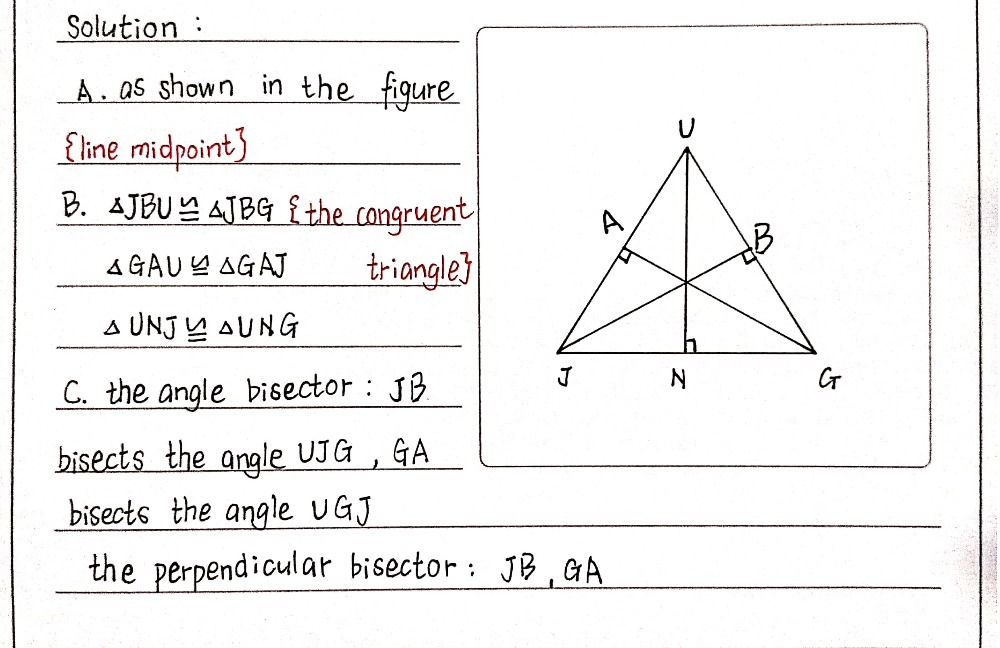 Solution :
A. as shown in the figure
{line midpoint}
B. △JBU ≌ △JBG {the congruent
△GAU ≌ △GAJ triangle}
△UNJ ≌ △UNG
C. the angle bisector : JB
bisects the angle UJG , GA
bisects the angle UGJ
the perpendicular bisector : JB , GA
U
A
B
J
N
G